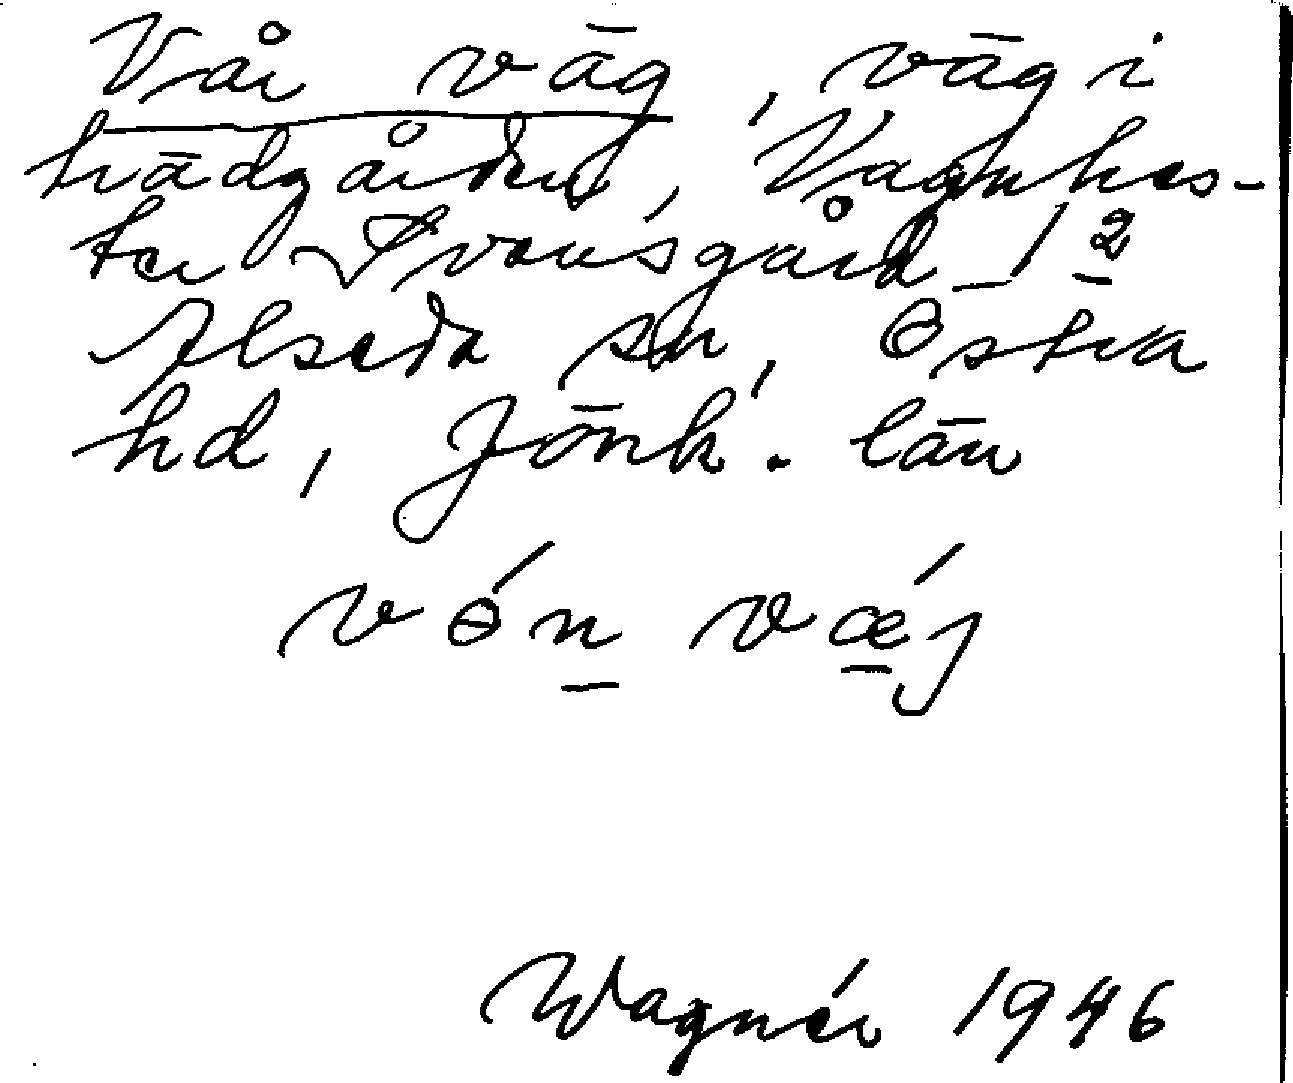 Vår väg, väg i
trädgården, Vagnhes-
ter Ivarsgård 1 2
Alseda sn, Östra
hd, Jönk. län
vón vǽj
Wagnér 1946